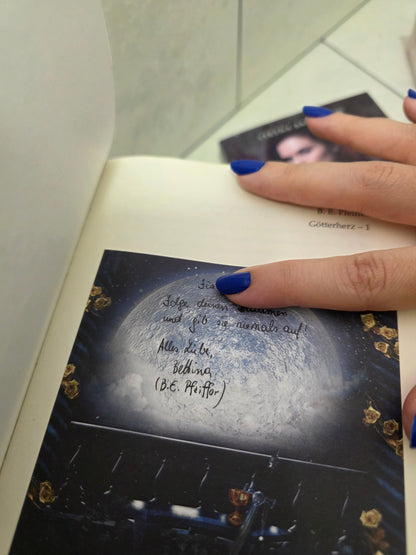 B. E. Pfeiffer
Götterherz – 1
Folge deinen Träumen
und gib sie niemals auf!
Alles Liebe,
Bettina
(B.E. Pfeiffer)